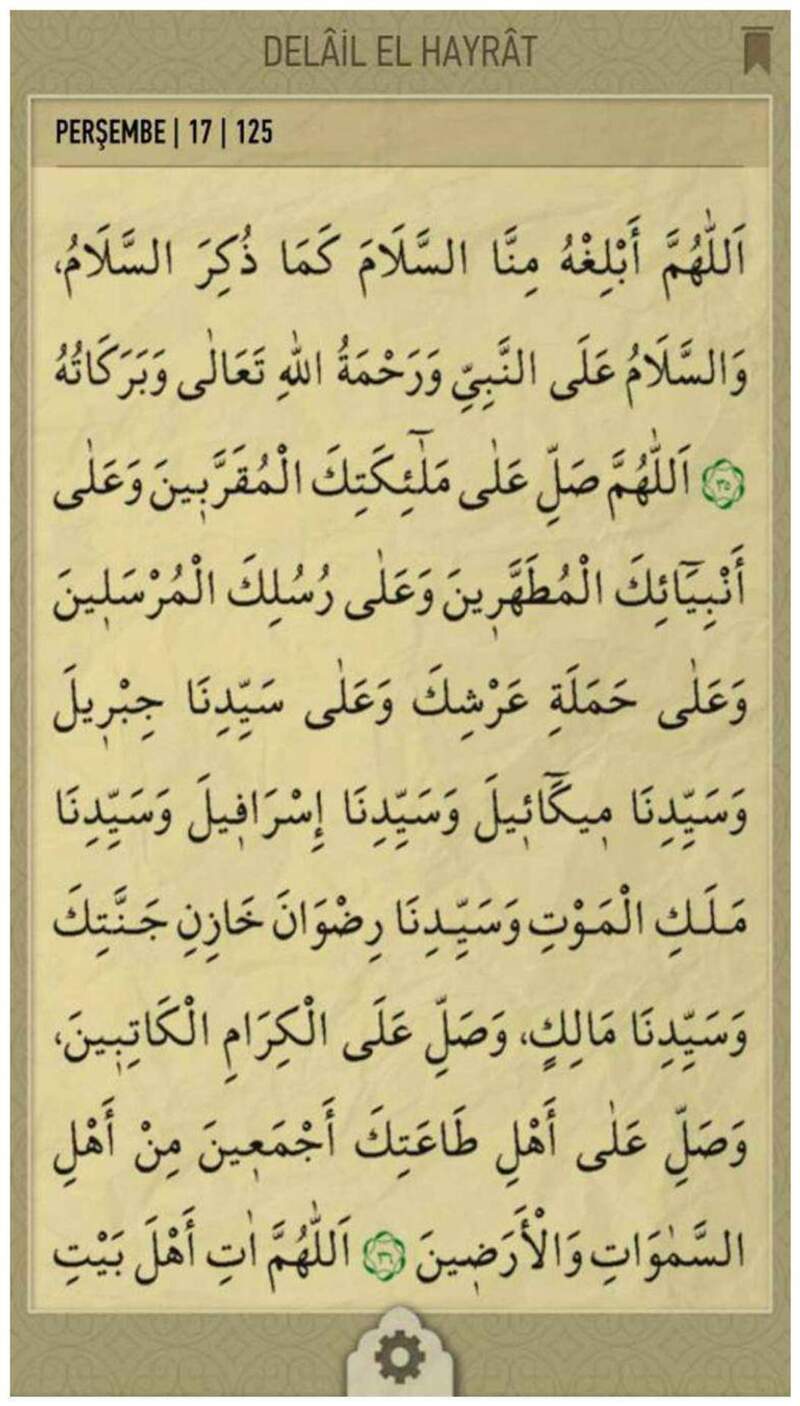 DELÂİL EL HAYRÂT
PERŞEMBE | 17 | 125
اَللّٰهُمَّ أَبْلِغْهُ مِنَّا السَّلَامَ كَمَا ذُكِرَ السَّلَامُ،
وَالسَّلَامُ عَلَى النَّبِيِّ وَرَحْمَةُ اللهِ تَعَالٰى وَبَرَكَاتُهُ
﴿٣٥﴾ اَللّٰهُمَّ صَلِّ عَلٰى مَلٰٓئِكَتِكَ الْمُقَرَّبٖينَ وَعَلٰى
أَنْبِيَٓائِكَ الْمُطَهَّرٖينَ وَعَلٰى رُسُلِكَ الْمُرْسَلٖينَ
وَعَلٰى حَمَلَةِ عَرْشِكَ وَعَلٰى سَيِّدِنَا جِبْرٖيلَ
وَسَيِّدِنَا مٖيكَٓائٖيلَ وَسَيِّدِنَا إِسْرَافٖيلَ وَسَيِّدِنَا
مَلَكِ الْمَوْتِ وَسَيِّدِنَا رِضْوَانَ خَازِنِ جَنَّتِكَ
وَسَيِّدِنَا مَالِكٍ، وَصَلِّ عَلَى الْكِرَامِ الْكَاتِبٖينَ،
وَصَلِّ عَلٰى أَهْلِ طَاعَتِكَ أَجْمَعٖينَ مِنْ أَهْلِ
السَّمٰوَاتِ وَالْأَرَضٖينَ ﴿٣٦﴾ اَللّٰهُمَّ اٰتِ أَهْلَ بَيْتِ